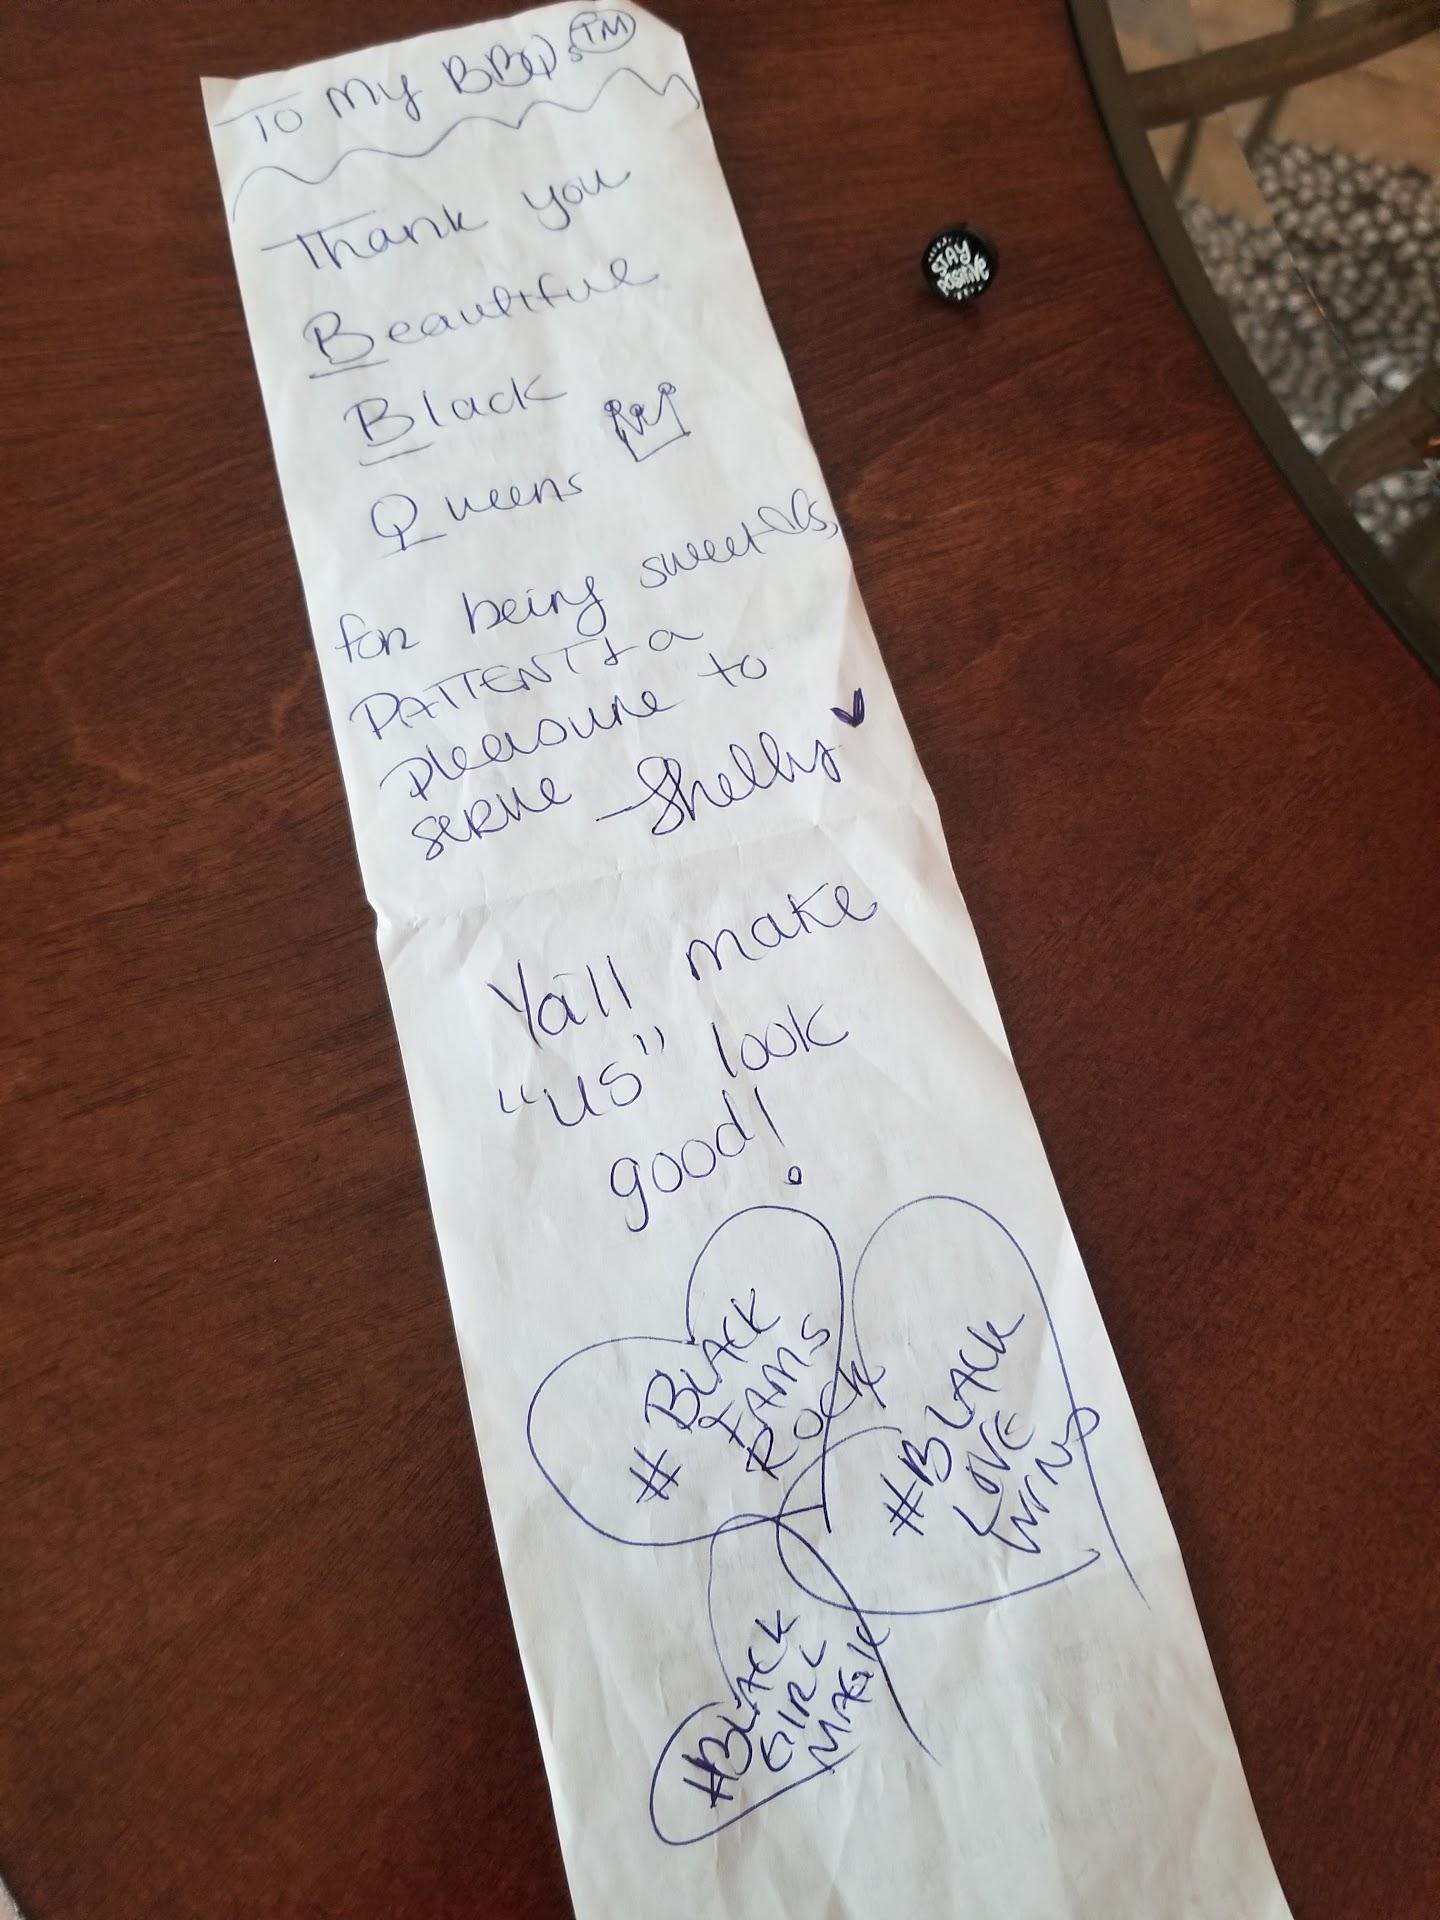 To My BBQs TM
Thank you
Beautiful
Black
Queens
for being sweet
PATIENT + a
pleasure to
serve -Shelly
Ya'll make
"us" look
good!
#BLACK
FAMS
ROCK
#BLACK
LOVE
WINS
#BLACK
GIRL
MAGIK
STAY
POSITIVE